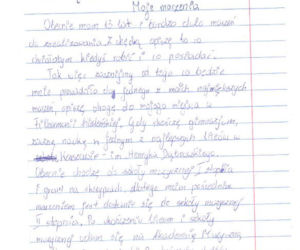 Moje marzenia
Obecnie mam 13 lat i bardzo dużo marzeń
do zrealizowania. Z chęcią opiszę to co
chciałbym kiedyś robić i co posiadać.
Tak więc zacznijmy od tego co będzie
mnie prowadziło do jednego z moich największych
marzeń, opiszę drogę do mojego miejsca w
Filharmonii. Gdy skończę gimnazjum,
zacznę naukę w jednym z najlepszych liceów w
- im. Henryka Dąbrowskiego.
Obecnie chodzę do szkoły muzycznej I stopnia
i gram na skrzypcach, dlatego moim
marzeniem jest dostanie się do szkoły muzycznej
II stopnia. Po ukończeniu liceum i szkoły
muzycznej udam się na Akademię Muzyczną